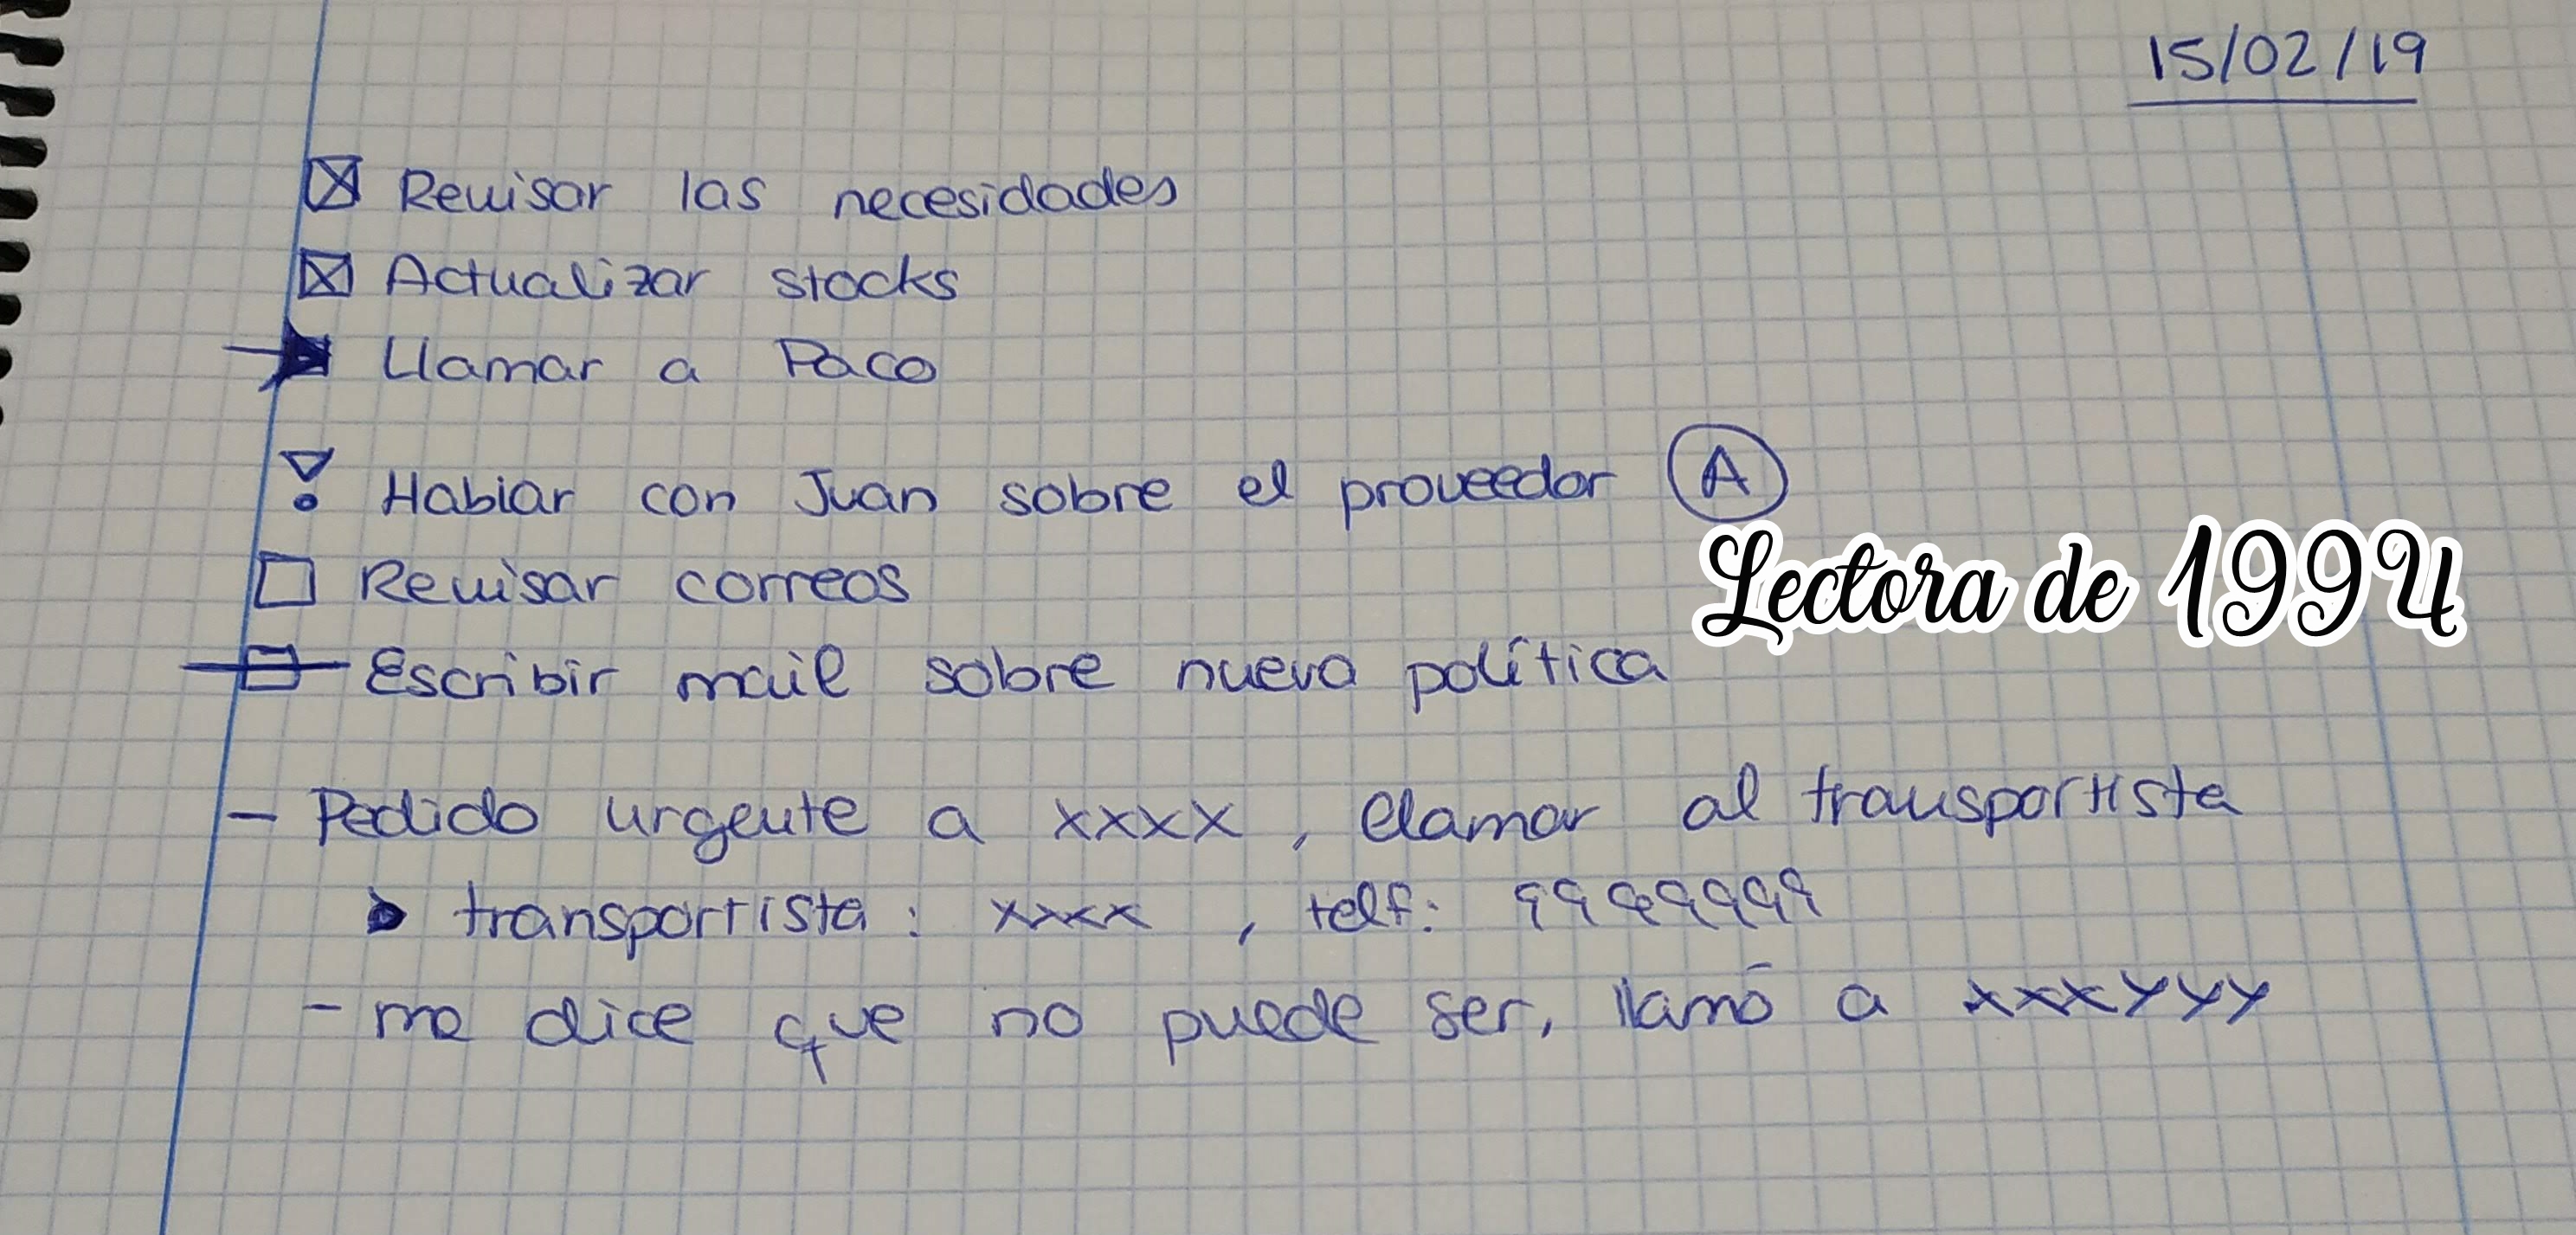 15/02/19
Revisar las necesidades
Actualizar stocks
Llamar a Paco
Hablar con Juan sobre el proveedor A
Lectora de 1994
Revisar correos
Escribir mail sobre nueva política
- Pedido urgente a xxxx, llamar al transportista
transportista: xxxx, telf: 9999999
- me dice que no puede ser, llamó a xxxyyy